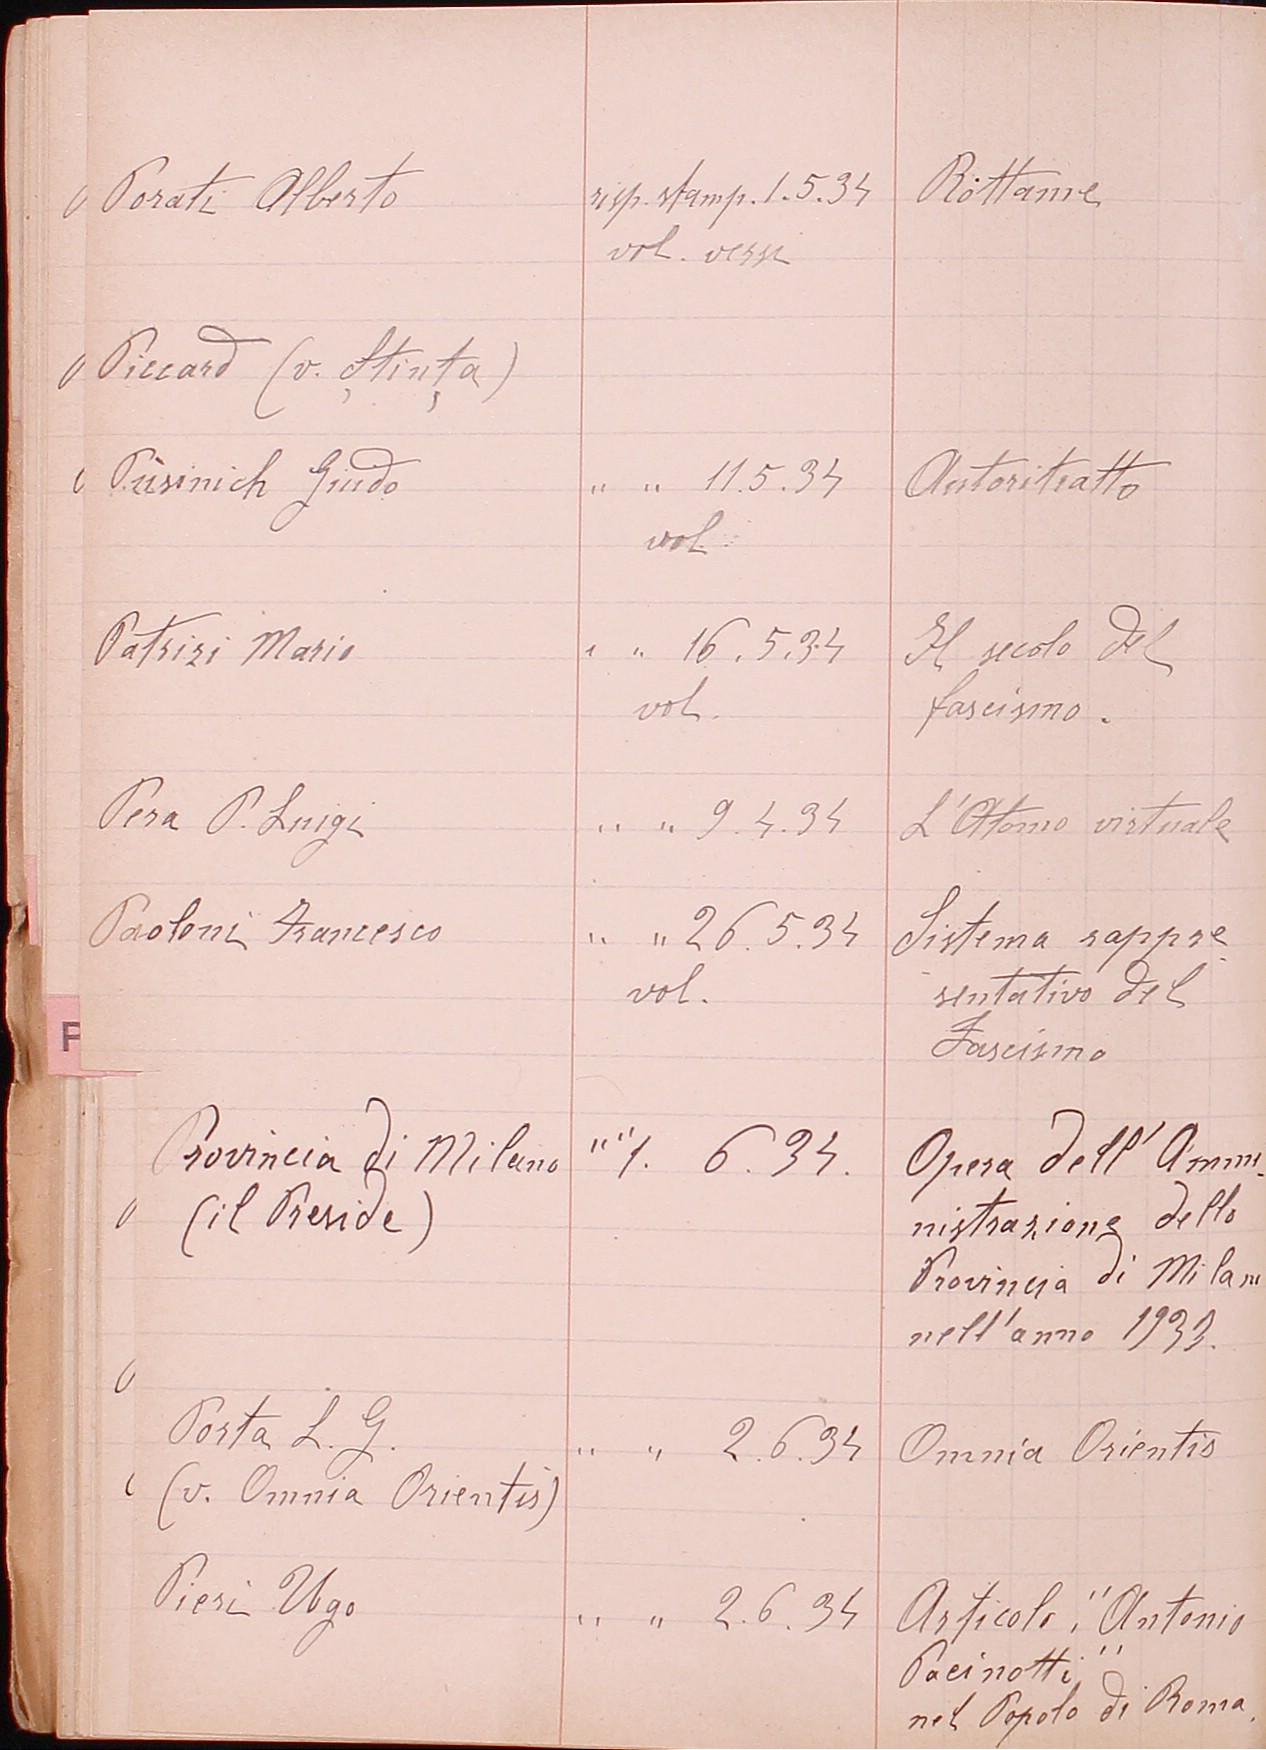 Porati Alberto risp. stamp. 1.5.34 Rottame
vol. versi
Piccard (v. Ştiinţa)
Pùsinich Guido " " 11.5.34 Autoritratto
vol.
Patrizi Mario " " 16.5.34 Il secolo del
vol. fascismo.
Pera P. Luigi " " 9.4.34 L'Atomo virtuale
Paoloni Francesco " " 26.5.34 Sistema rappre
vol. sentativo del
Fascismo
P
Provincia di Milano " " 1. 6. 34. Opera dell'Ammi-
(il Preside) nistrazione della
Provincia di Milano
nell'anno 1933.
Porta L. G. " " 2.6.34 Omnia Orientis
(v. Omnia Orientis)
Pieri Ugo " " 2.6.34 Articolo: "Antonio
Pacinotti"
nel Popolo di Roma.